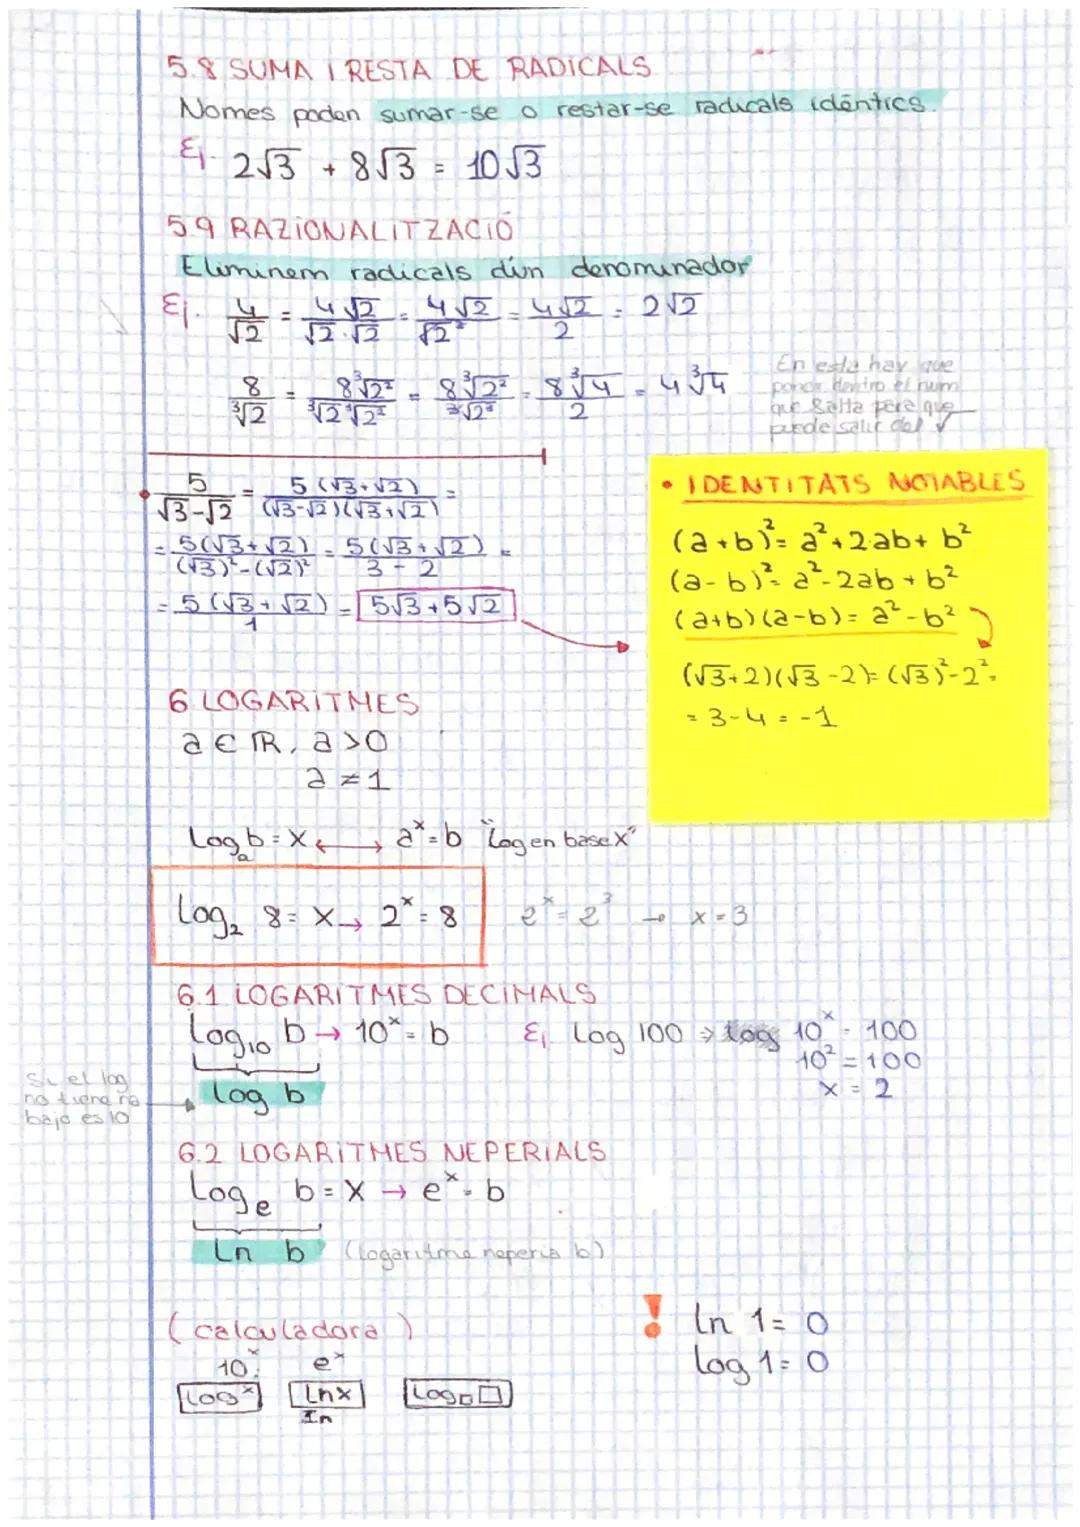 5.8 SUMA I RESTA DE RADICALS
Nomes poden sumar-se o restar-se radicals idéntics.
Ej. 2√3 + 8√3 = 10√3
5.9 RAZIONALITZACIÓ
Eliminem radicals d'un denominador
Ej. 4/√2 = 4√2/√2·√2 = 4√2/√2² = 4√2/2 = 2√2
8/∛2 = 8∛2²/∛2 ∛2² = 8∛2²/∛2³ = 8∛4/2 = 4∛4
En esta hay que
poner dentro el num
que falta para que
puede salir del √
5/√3-√2 = 5(√3+√2)/(√3-√2)(√3+√2) =
= 5(√3+√2)/(√3)²-(√2)² = 5(√3+√2)/3-2 =
= 5(√3+√2)/1 = 5√3+5√2
• IDENTITATS NOTABLES
(a+b)² = a²+2·ab+b²
(a-b)² = a²-2ab+b²
(a+b)(a-b) = a²-b²
(√3+2)(√3-2) = (√3)²-2² =
= 3-4 = -1
6 LOGARITMES
a ∈ ℝ, a>0
a ≠ 1
Logₐ b = x ↔ aˣ = b "Log en base x"
Log₂ 8 = x → 2ˣ = 8 2ˣ = 2³ → x = 3
6.1 LOGARITMES DECIMALS
Log₁₀ b → 10ˣ = b Ej Log 100 → log 10ˣ = 100
10² = 100
x = 2
Si el log
no tiene na
bajo es 10
log b
6.2 LOGARITMES NEPERIALS
Logₑ b = x → eˣ = b
Ln b (logaritme neperia b)
(calculadora)
10ˣ eˣ
Logˣ Lnx Log□□
In
! ln 1 = 0
log 1 = 0